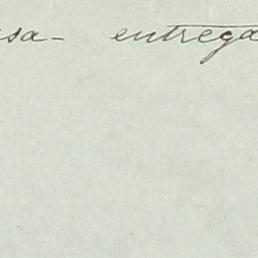 sa- entrega